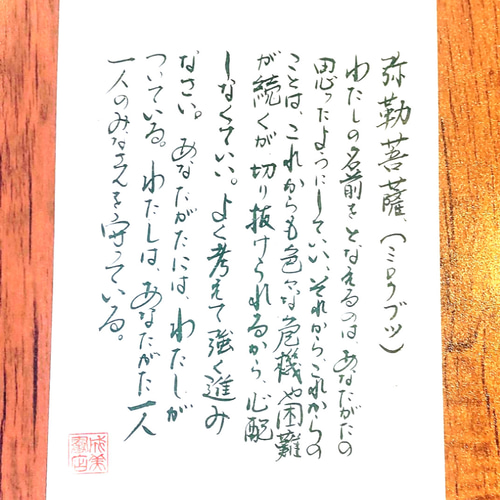 弥勒菩薩、(ミロクブツ)
わたしの名前をとなえるのは、あなたがたの
思ったようにしていい、それから、これからの
ことは、これからも色々な危機や困難
が続くが切り抜けられるから、心配
しなくていい。よく考えて強く進み
なさい。あなたがたには、わたしが
ついている。わたしは、あなたがた一人
一人のみなさんを守っている。